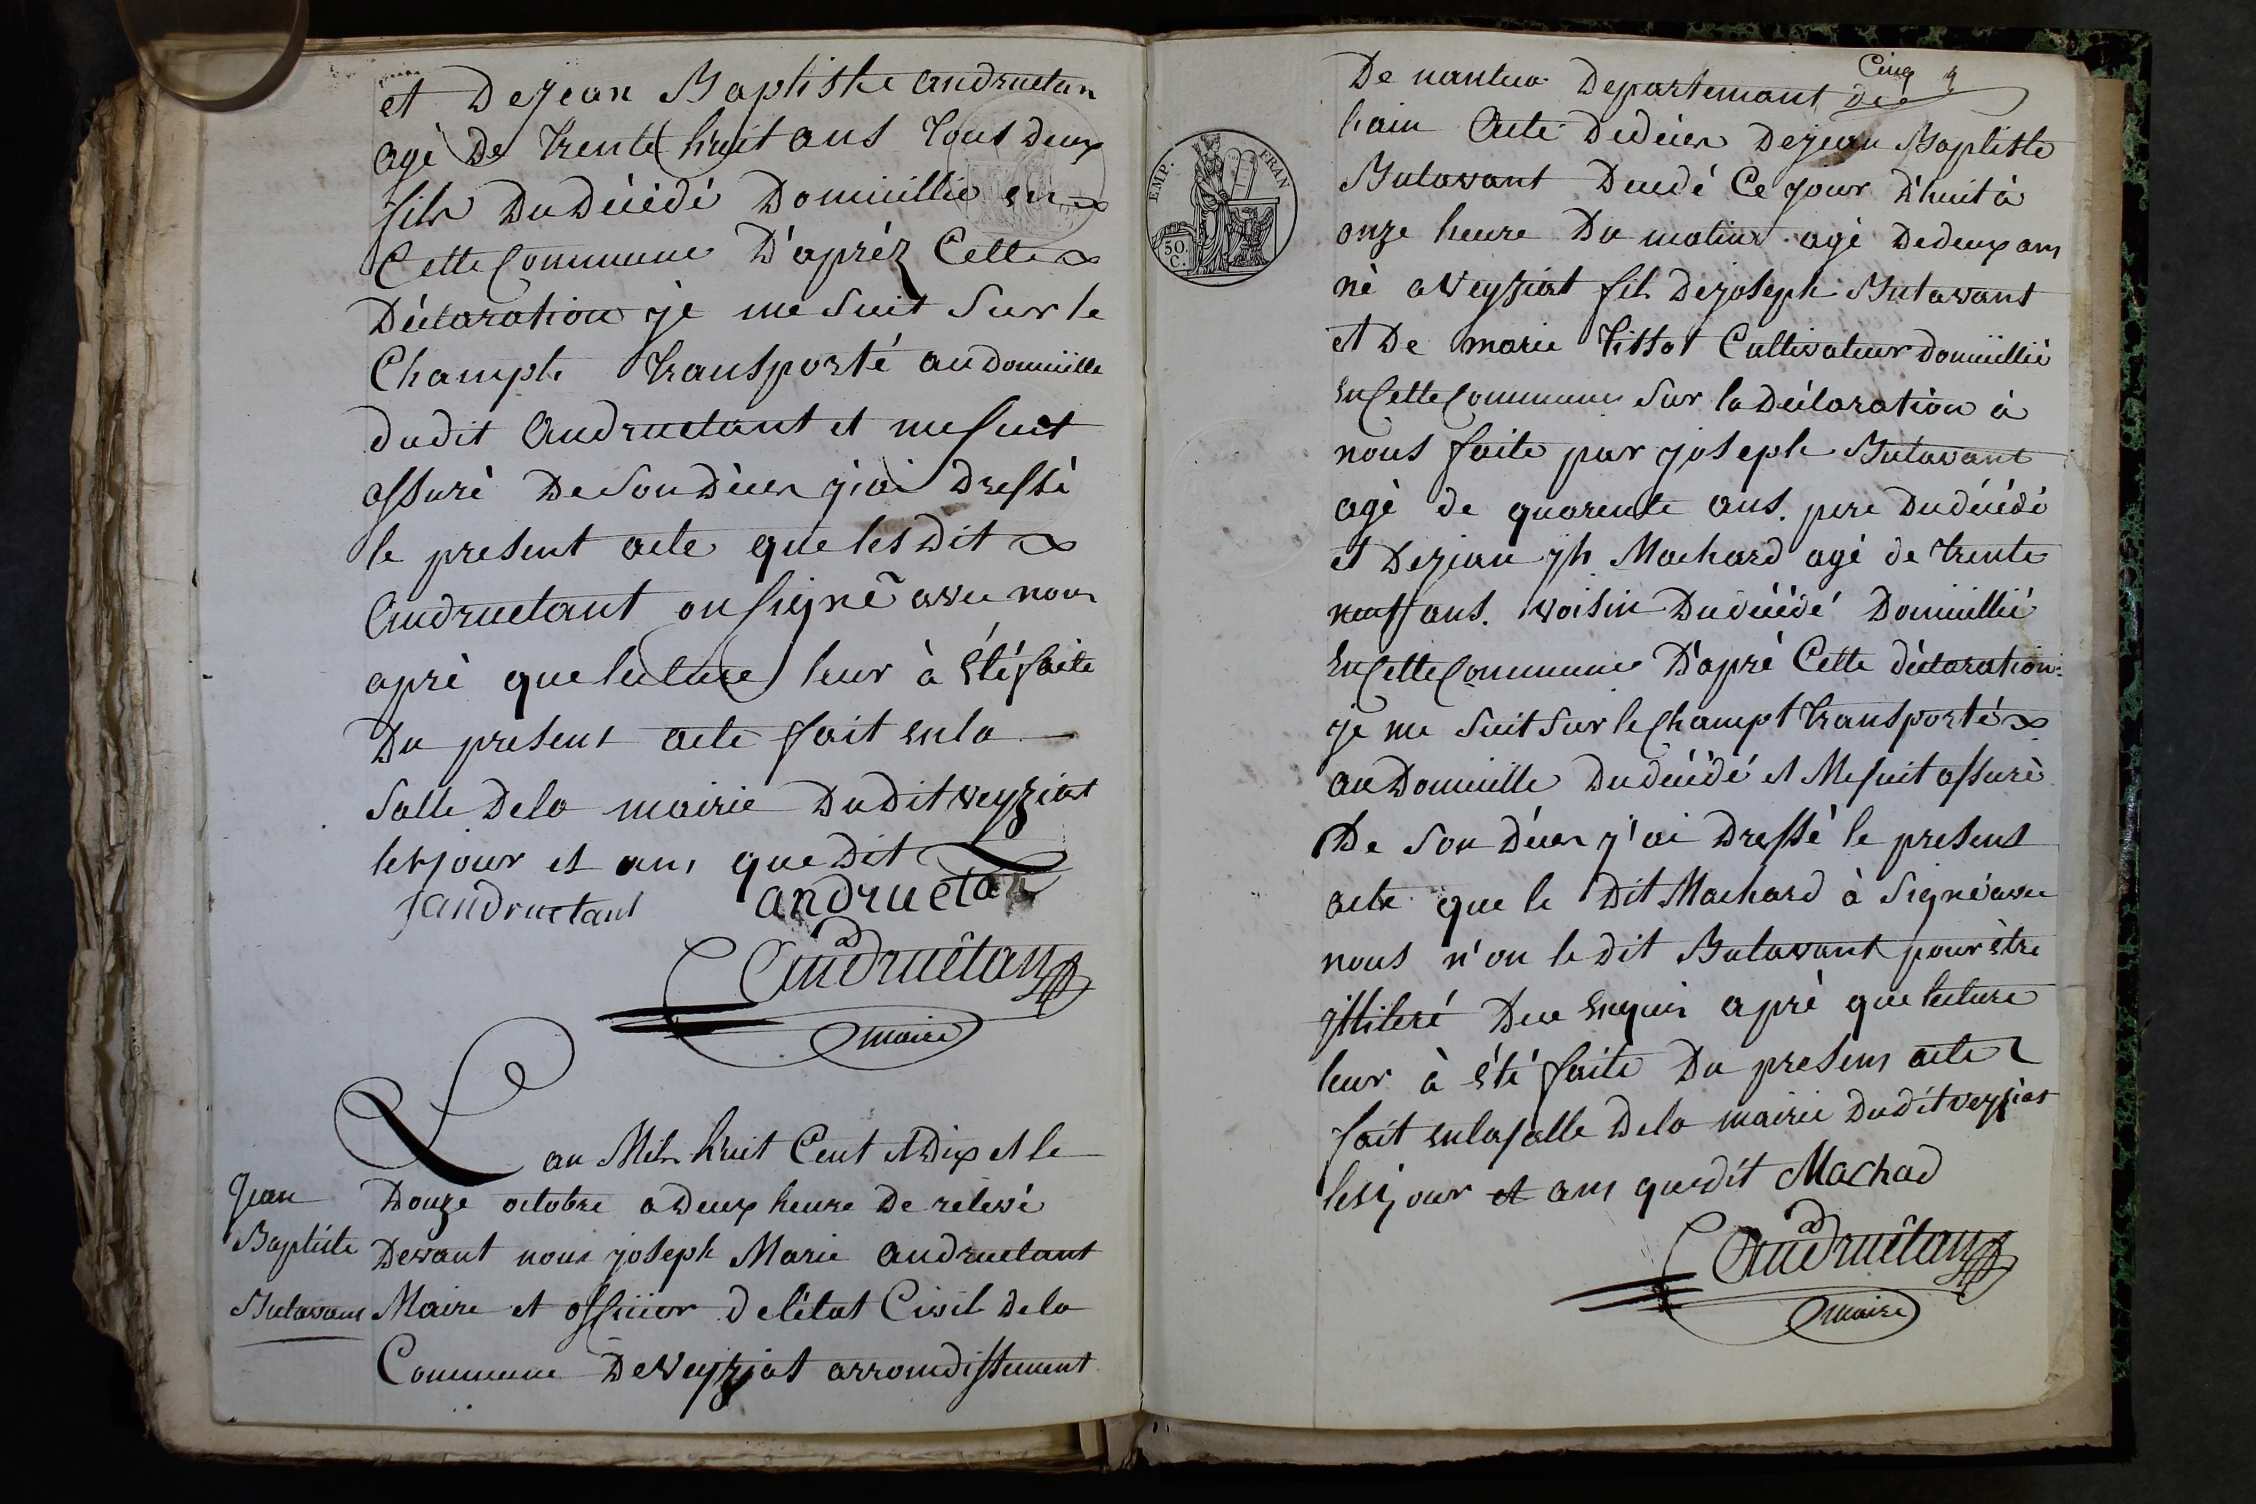 et De jean Baptiste andruetan
agé De trente huit ans tous deux
fils Du Dècédé Domicillié en
Cette Commune D'aprèz Cette
Déclaration je me suit Sur le
Champt transporté au domicille
dudit Andruetant et me suit
assuré De son Décès j'ai Dressé
le present acte que les Dit
Andruetant on signé avec nous
aprè que lecture leur à été faite
Du present acte fait en la
Salle De la mairie Dudit veyziat
les jour et ans que Dit
jandruetant andrueta
Andruêtan
maire
L an Mil huit Cent et Dix et le
Douze octobre a Deux heure De relevé
Devant nous joseph Marie andruetant
Maire et officier De l'état Civil De la
Commune De Veyziat arrondissement
Jean
Baptiste
Butavant
Cinq
De nantua Departemant De
l'ain Acte De décès De jean Baptiste
Butavant Decedé Ce jour D'huit à
onze heure Du matin agé De deux ans
né a Veyziat fils De joseph Butavant
et De marie Tissot Cultivateur domicillié
en Cette Commune Sur la Déclaration à
nous faite par joseph Butavant
agé de quarente ans. pere Du décédé
et De jean jh Machard agé de trente
neuff ans. voisin Du décédé Domicillié
en Cette Commune D'aprè Cette déclaration
je me suit sur le Champt transporté
au Domicille Du décédé et Me suit assuré
De son Décès j'ai Dressé le present
acte que le Dit Machard à Signé avec
nous n'on le dit Butavant pour être
illiteré De ce enquis aprè que lecture
leur à été faite Du present acte
fait en la salle De la mairie Dudit veyziat
les jour et ans que dit Machad
Andruêtan
maire
EMP. FRAN
50.
C.